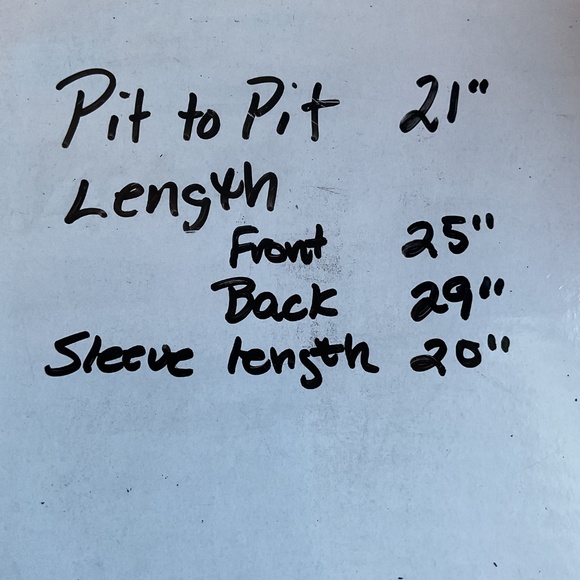 Pit to Pit 21"
Length
Front 25"
Back 29"
Sleeve length 20"